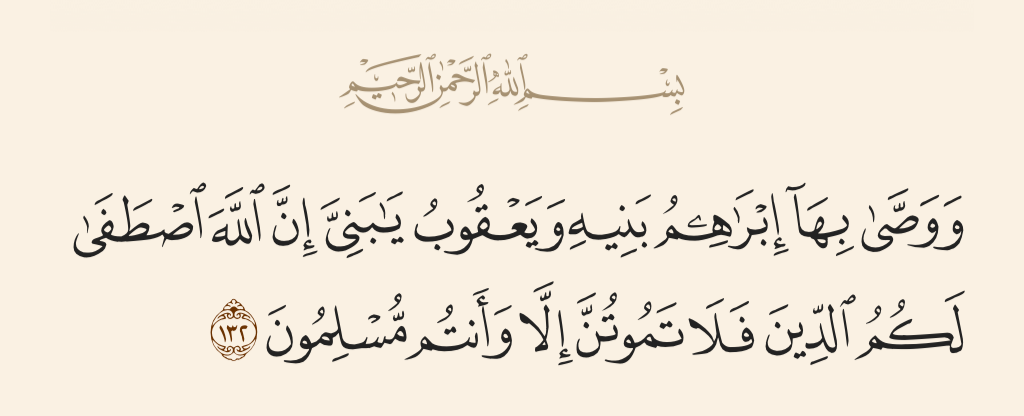 بِسْمِ ٱللَّهِ ٱلرَّحْمَٰنِ ٱلرَّحِيمِ
وَوَصَّىٰ بِهَآ إِبْرَٰهِـۧمُ بَنِيهِ وَيَعْقُوبُ يَٰبَنِىَّ إِنَّ ٱللَّهَ ٱصْطَفَىٰ
لَكُمُ ٱلدِّينَ فَلَا تَمُوتُنَّ إِلَّا وَأَنتُم مُّسْلِمُونَ ١٣٢